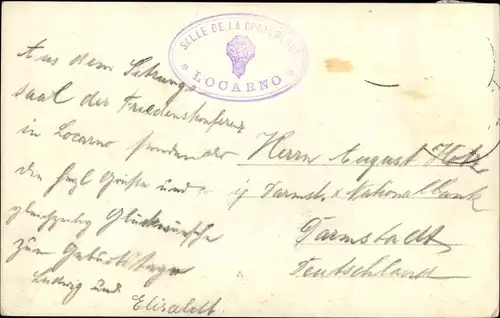 SALLE DE LA CONFERENCE
LOCARNO
Aus dem Sitzungs
saal der Friedenskonferenz
in Locarno senden
die herzl Grüße und
gleichzeitig Glückwünsche
zum Geburtstage
Ludwig und
Elisabeth.
Herrn August
Darmst. & Nationalbank
Darmstadt
Deutschland